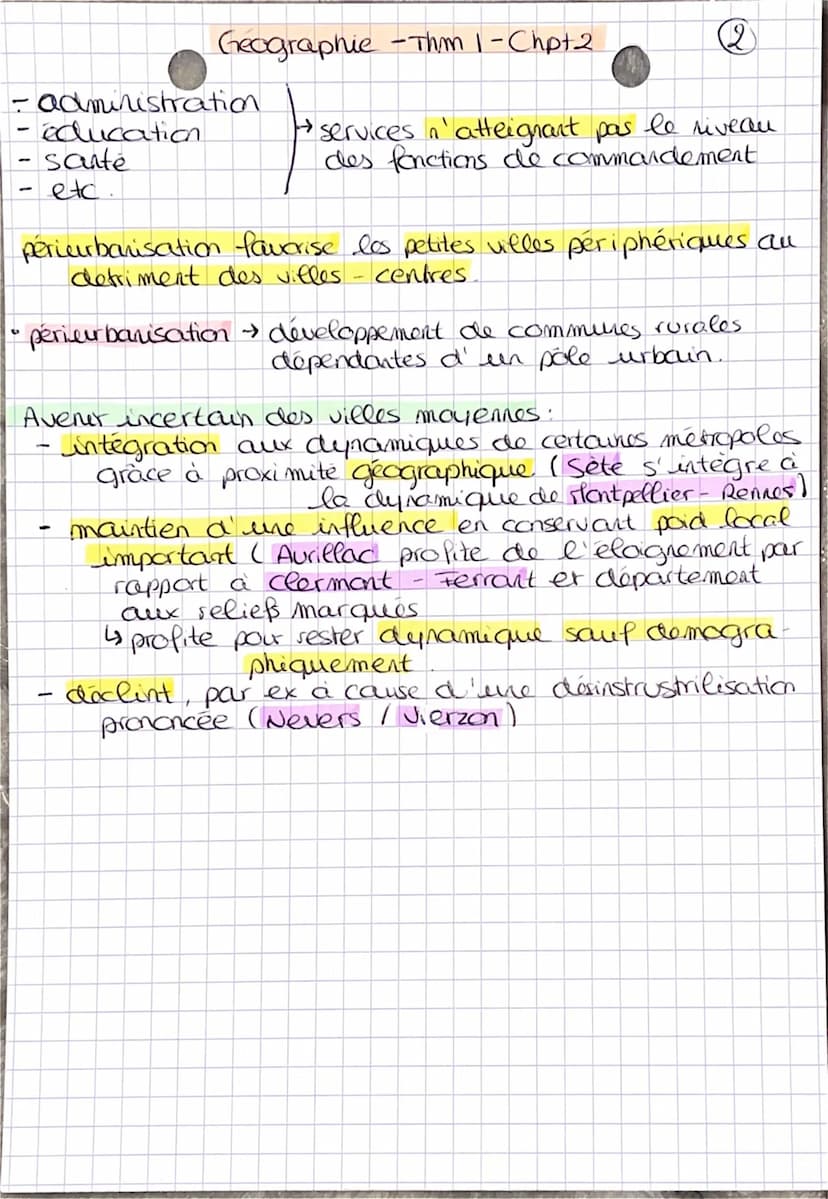 Géographie - Thm 1 - Chpt 2
2
- administration
- éducation
- santé
- etc.
→ services n'atteignant pas le niveau
des fonctions de commandement
périeurbanisation favorise les petites villes périphériques au
detriment des villes - centres.
• périeurbanisation → développement de communes rurales
dépendantes d'un pôle urbain.
Avenir incertain des villes moyennes :
- intégration aux dynamiques de certaines métropoles
grâce à proximité géographique (Sète s'intègre à
la dynamique de Montpellier - Rennes)
- maintien d'une influence en conservant poid local
important ( Aurillac profite de l'éloignement par
rapport à Clermont - Ferrant et département
aux reliefs marqués
↳ profite pour rester dynamique sauf démogra-
phiquement.
- déclint, par ex à cause d'une désinstrustrilisation
prononcée (Nevers / Vierzon)